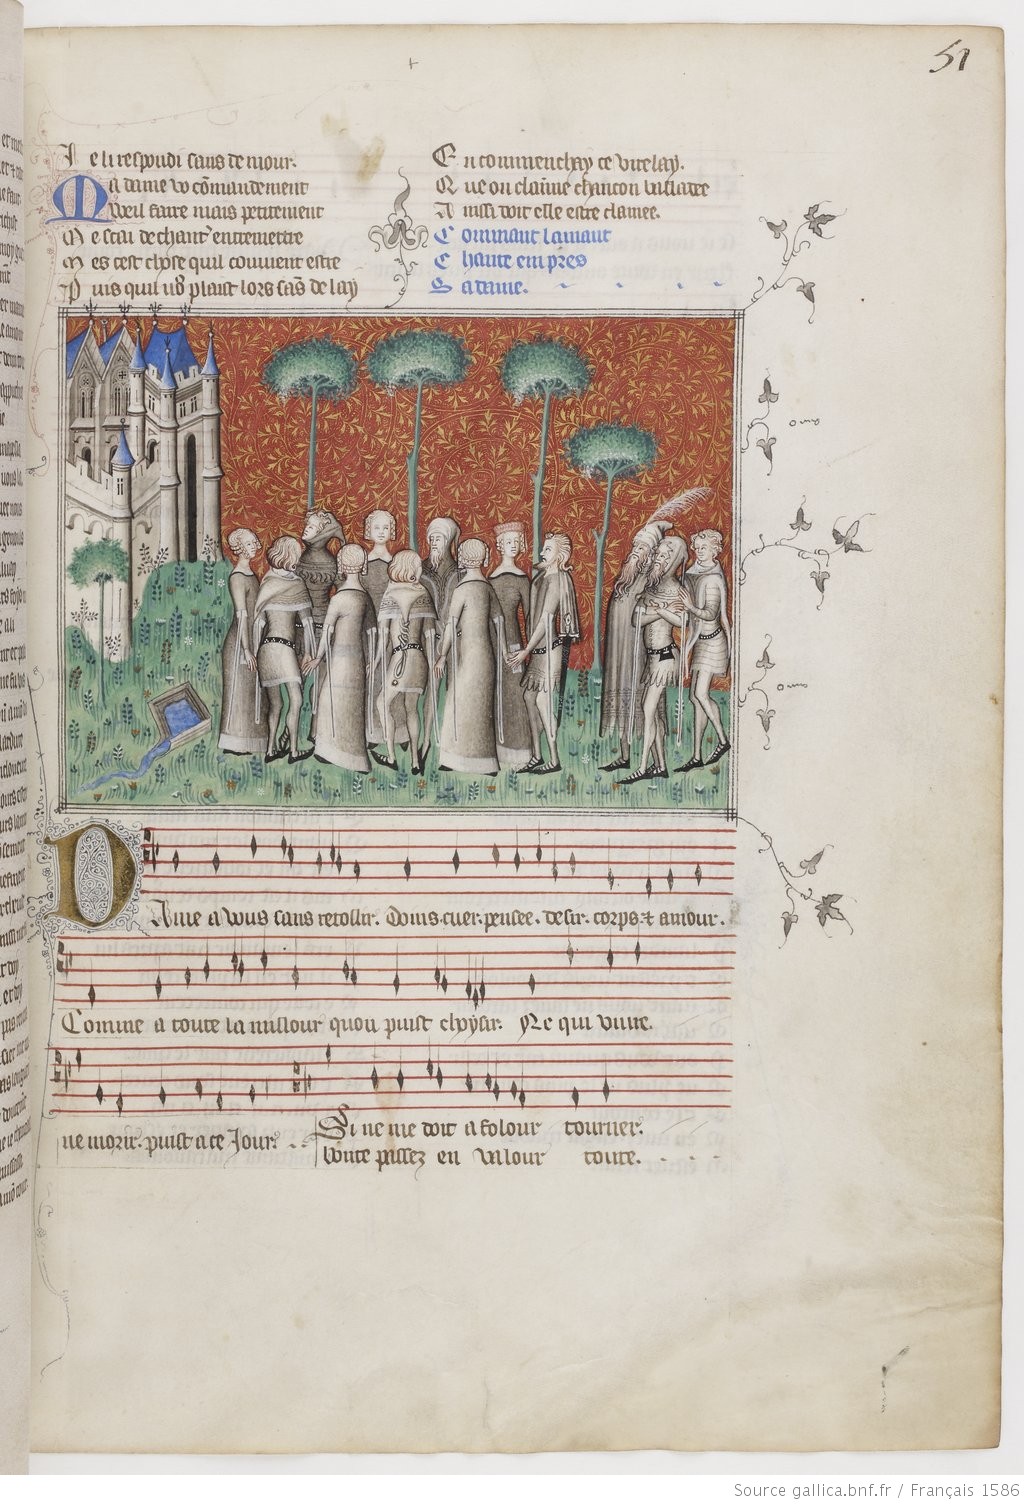 51
Je li respondi sans demour.
Ma dame vo cõmandement
Weil faire mais petitement
Me scai de chant' entremettre
Mes cest chose quil couuient estre
Puis quil uo9 plaist lors sãs delay
En commenchay ce virelay.
Que on claimme chancon balladee
Ainssi doit elle estre clamee.
Commant lamant
Chante empres
Sa dame.
Dame a vous sans retollir. Doins cuer. pensee. desir. corps. & amour.
Comme a toute la millour quon puist choysir. Ne qui viure.
ne morir. puist a ce Jour.
Si ne me doit a folour tourner.
bonte passez en valour toute.
Source gallica.bnf.fr / Français 1586